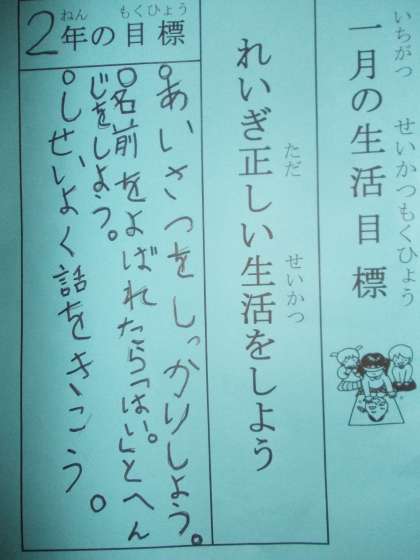 一月の生活目標
いちがつ せいかつもくひょう
れいぎ正しい生活をしよう
ただ せいかつ
2年の目標
ねん もくひょう
○あいさつをしっかりしよう。
○名前をよばれたら「はい。」とへん
じをしよう。
○しせいよく話をきこう。